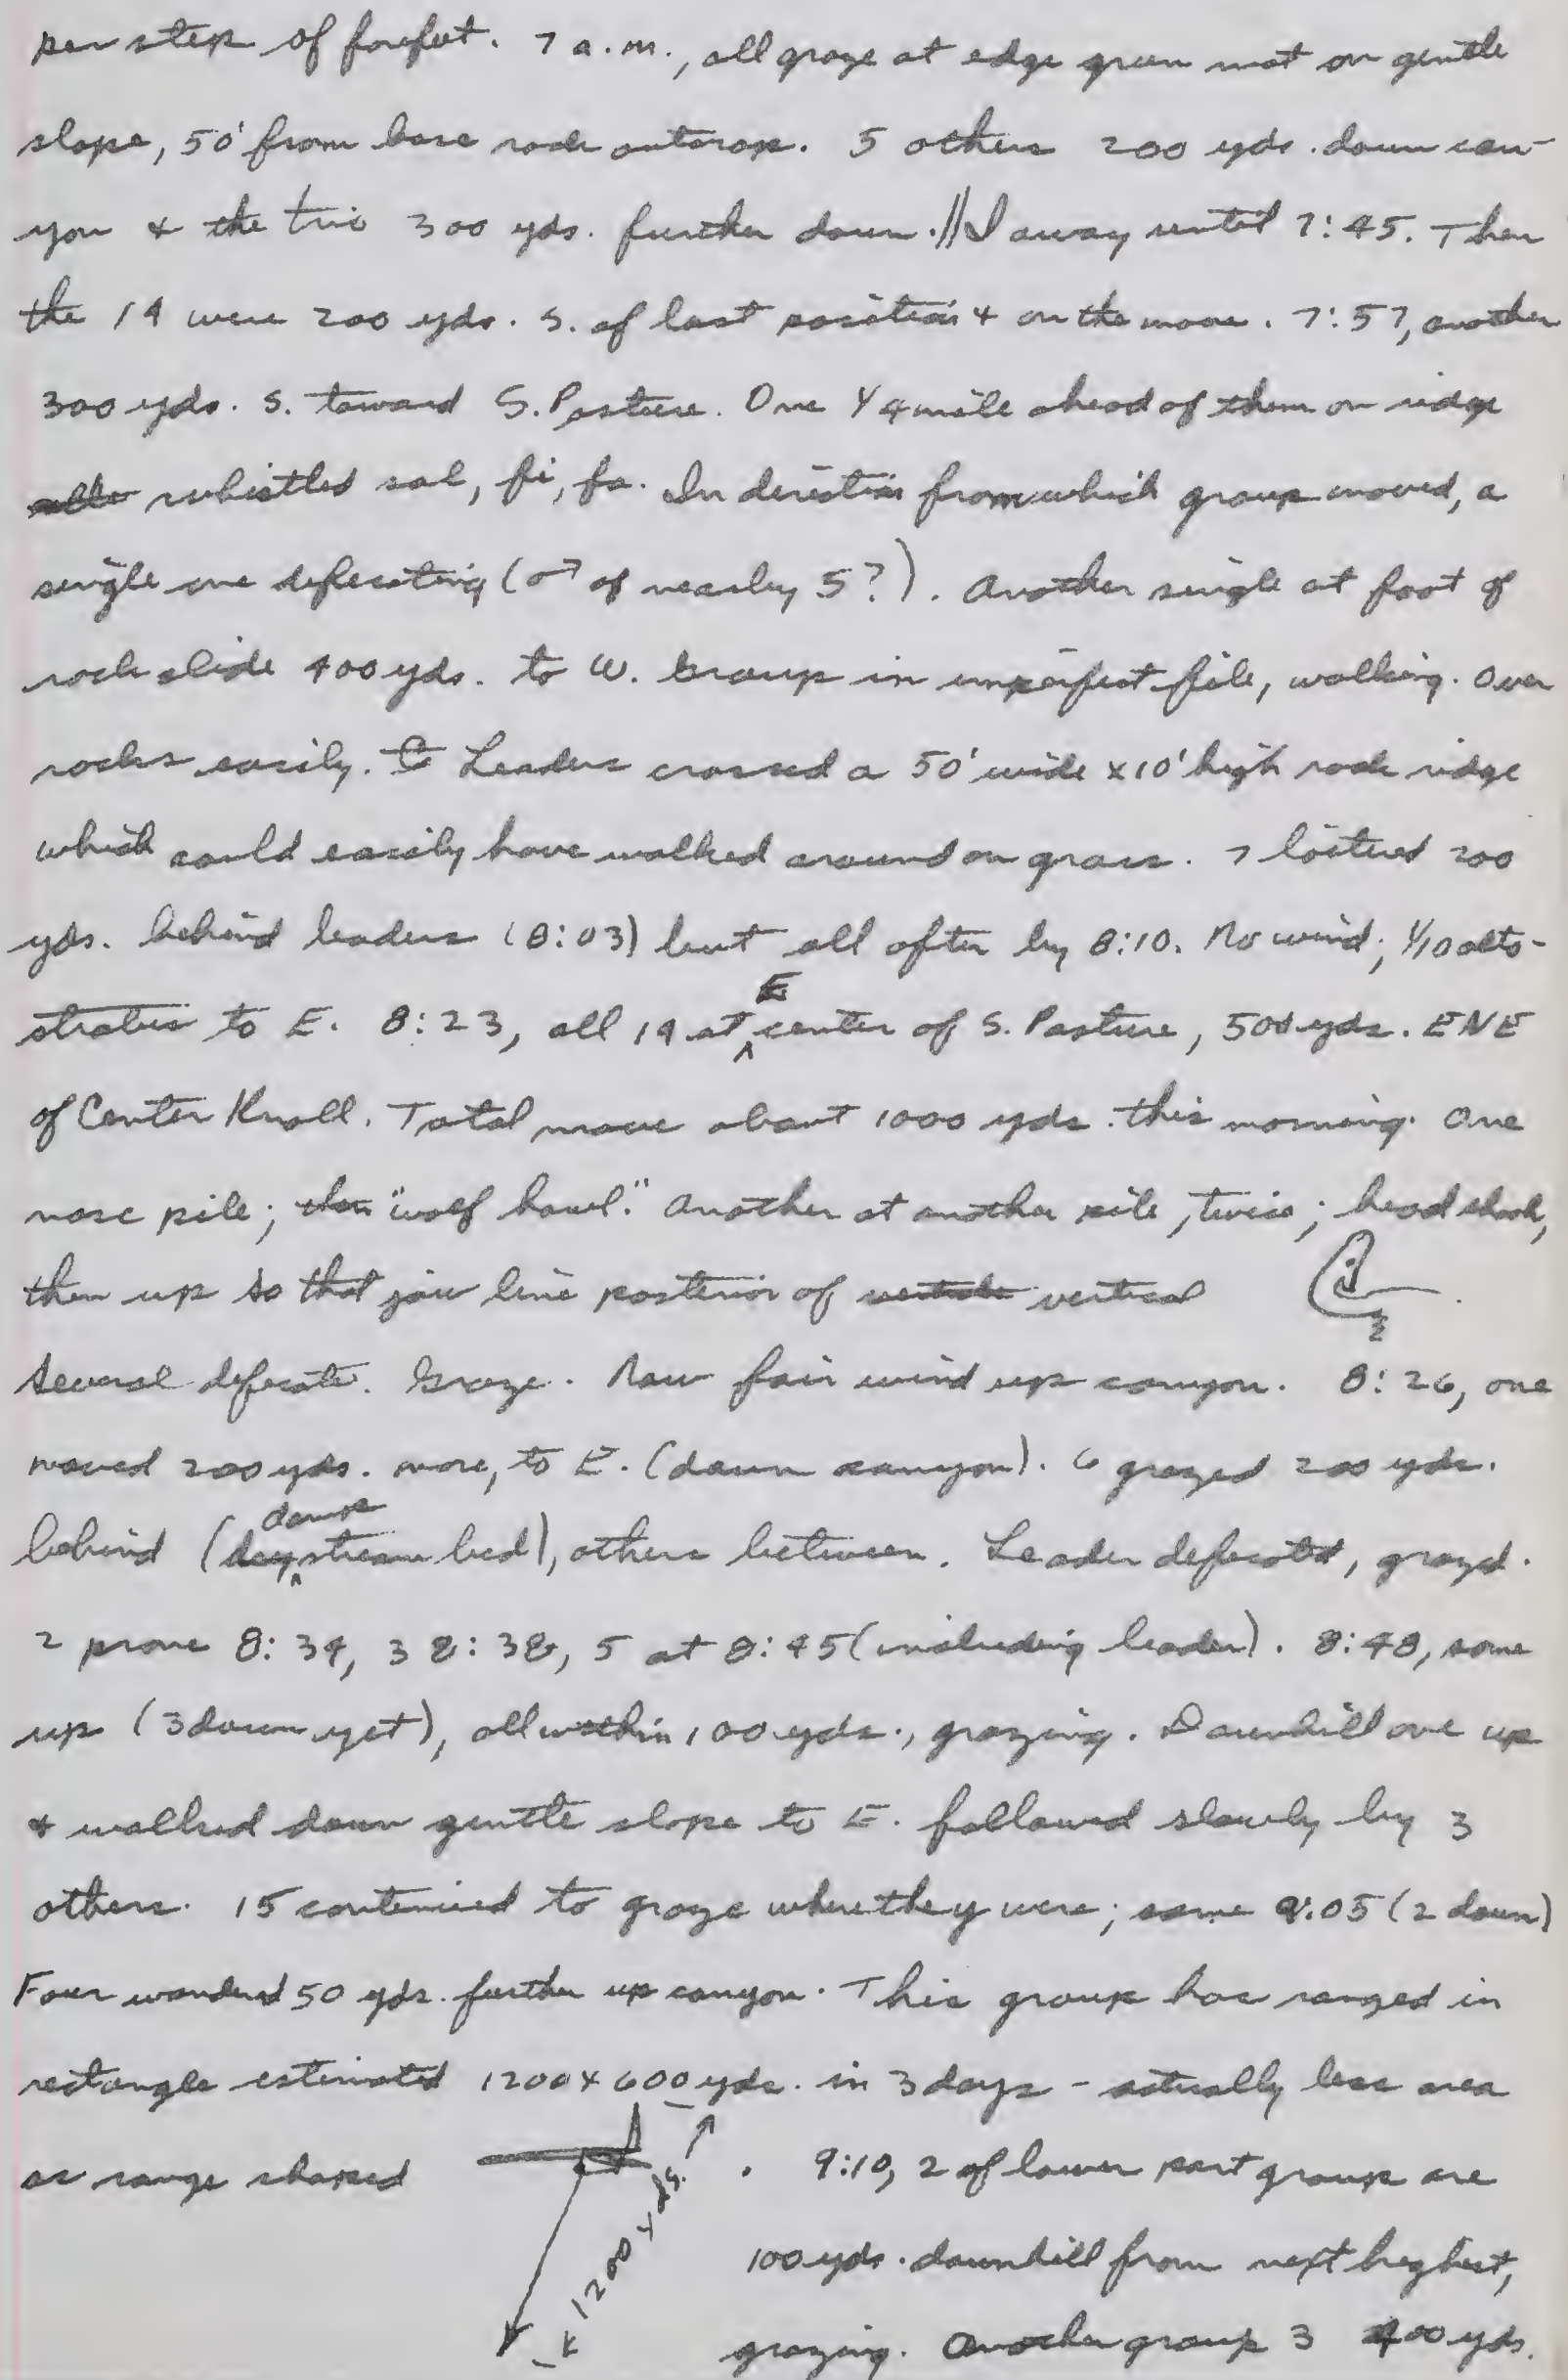 per step of forefeet. 7 a.m., all graze at edge green mat on gentle
slope, 50' from base rock outcrop. 5 others 200 yds. down can-
yon & the trio 300 yds. further down.//I away until 7:45. Then
the 19 were 200 yds. S. of last position & on the move. 7:57, another
300 yds. S. toward S. Pasture. One 1/4 mile ahead of them on ridge
whistled sol, fi, fa. In direction from which group moved, a
single one defecating (♂ of nearby 5?). Another single at foot of
rock slide 400 yds. to W. Group in imperfect file, walking. Over
rocks easily. Leaders crossed a 50' wide x 10' high rock ridge
which could easily have walked around on grass. 7 loitered 200
yds. behind leaders (8:03) but all after by 8:10. No wind; 1/10 alto-
stratus to E. 8:23, all 19 at E center of S. Pasture, 500 yds. ENE
of Center Knoll. Total move about 1000 yds. this morning. One
nose pile; "wolf howl." Another at another pile, twice; head shook,
then up so that jaw line posterior of vertical
Several defecate. Graze. Now fair wind up canyon. 8:26, one
moved 200 yds. more, to E. (down canyon). 6 grazed 200 yds.
behind ( stream bed), others between. Leader defecated, grazed.
2 prone 8:34, 3 8:38, 5 at 8:45 (including leader). 8:48, some
up (3 down yet), all within 100 yds., grazing. Downhill one up
& walked down gentle slope to E. followed slowly by 3
others. 15 continued to graze where they were; same 9:05 (2 down)
Four wandered 50 yds. further up canyon. This group has ranged in
rectangle estimated 1200 x 600 yds. in 3 days - actually less area
as range shaped
1200 yds.
. 9:10, 2 of lower part group are
100 yds. downhill from next highest,
grazing. Another group 3 400 yds.